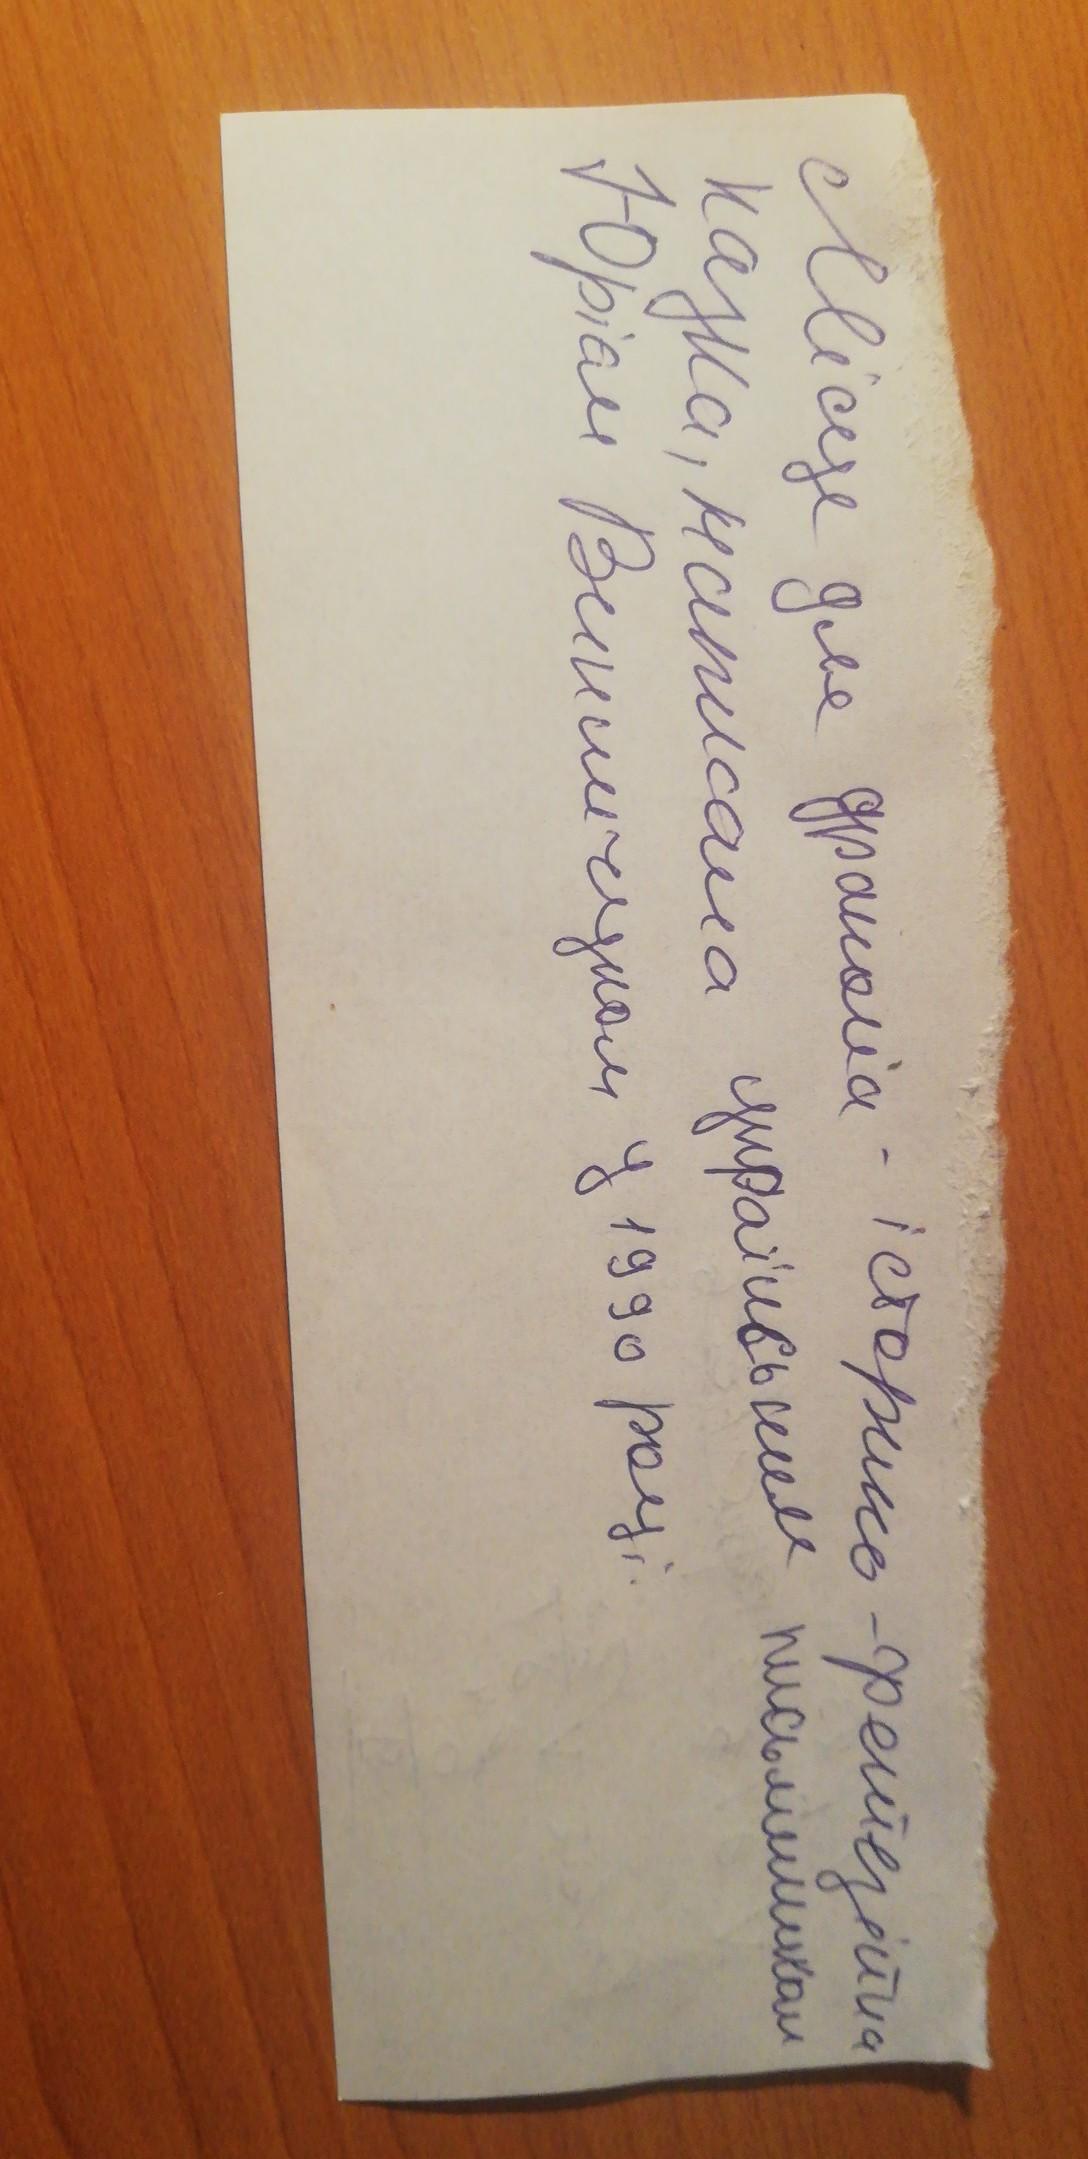 Місце для дракона - історико-рейицейна
казка, написала украінським письменником
Юріам Винничуком у 1990 році.